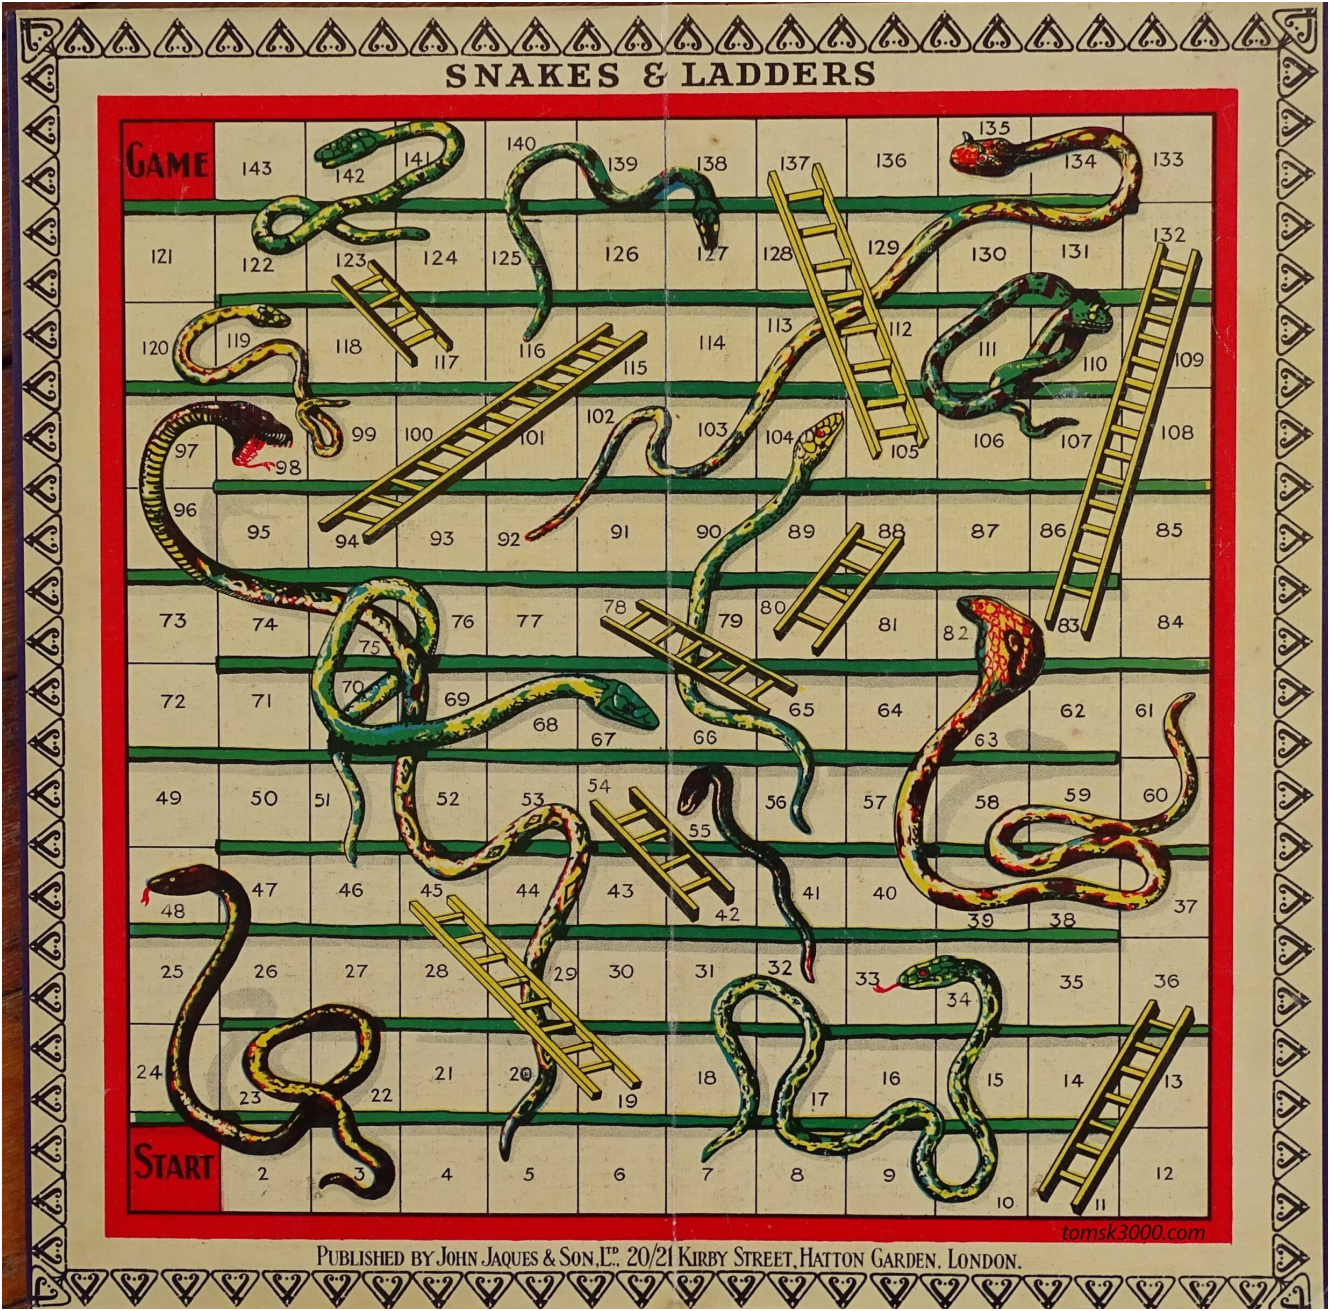 SNAKES & LADDERS
GAME 143 142 141 140 139 138 137 136 135 134 133
121 122 123 124 125 126 127 128 129 130 131 132
120 119 118 117 116 115 114 113 112 111 110 109
97 98 99 100 101 102 103 104 105 106 107 108
96 95 94 93 92 91 90 89 88 87 86 85
73 74 75 76 77 78 79 80 81 82 83 84
72 71 70 69 68 67 66 65 64 63 62 61
49 50 51 52 53 54 55 56 57 58 59 60
48 47 46 45 44 43 42 41 40 39 38 37
25 26 27 28 29 30 31 32 33 34 35 36
24 23 22 21 20 19 18 17 16 15 14 13
START 2 3 4 5 6 7 8 9 10 11 12
tomsk3000.com
PUBLISHED BY JOHN JAQUES & SON, LTD., 20/21 KIRBY STREET, HATTON GARDEN, LONDON.